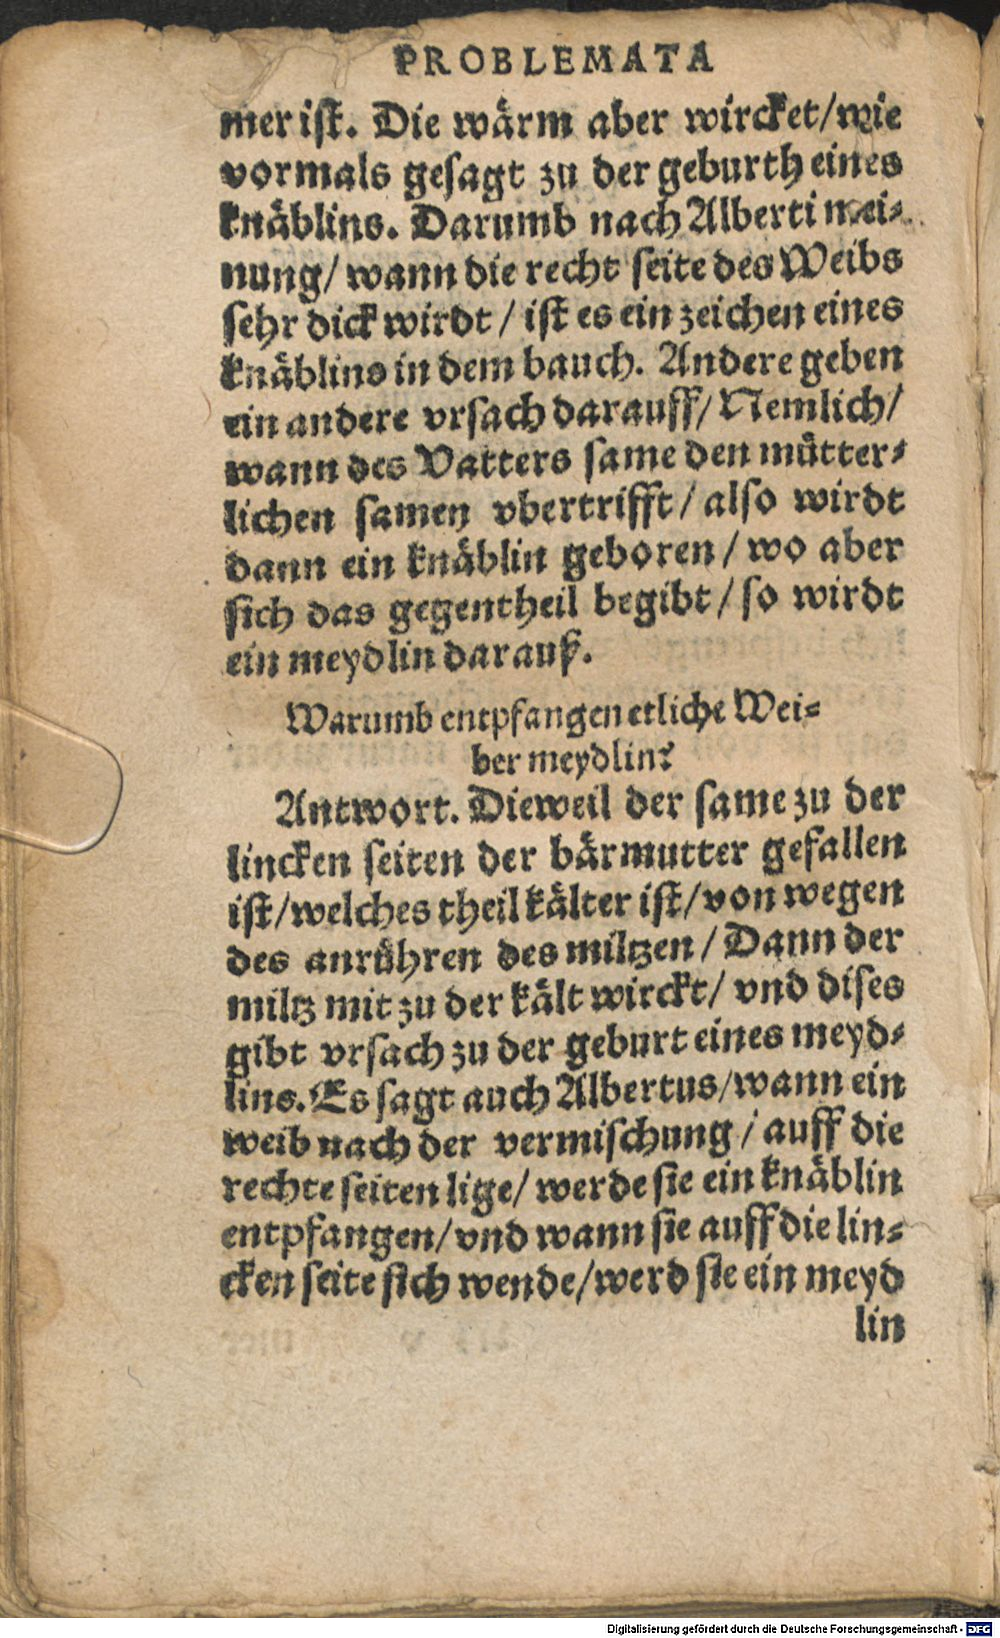 PROBLEMATA
mer ist. Die wärm aber wircket/wie
vormals gesagt zu der geburth eines
knäblins. Darumb nach Alberti mei⸗
nung/ wann die recht seite des Weibs
sehr dick wirdt / ist es ein zeichen eines
knäblins in dem bauch. Andere geben
ein andere vrsach darauff/ Nemlich/
wann des Vatters same den mütter⸗
lichen samen vbertrifft / also wirdt
dann ein knäblin geboren / wo aber
sich das gegentheil begibt / so wirdt
ein meydlin darauß.
Warumb entpfangen etliche Wei⸗
ber meydlin?
Antwort. Dieweil der same zu der
lincken seiten der bärmutter gefallen
ist/welches theil kälter ist/von wegen
des anrühren des miltzen / Dann der
miltz mit zu der kält wirckt/ vnd dises
gibt vrsach zu der geburt eines meyd⸗
lins. Es sagt auch Albertus/wann ein
weib nach der vermischung / auff die
rechte seiten lige/ werde sie ein knäblin
entpfangen/vnd wann sie auff die lin⸗
cken seite sich wende/werd sie ein meyd
lin
Digitalisierung gefördert durch die Deutsche Forschungsgemeinschaft - DFG